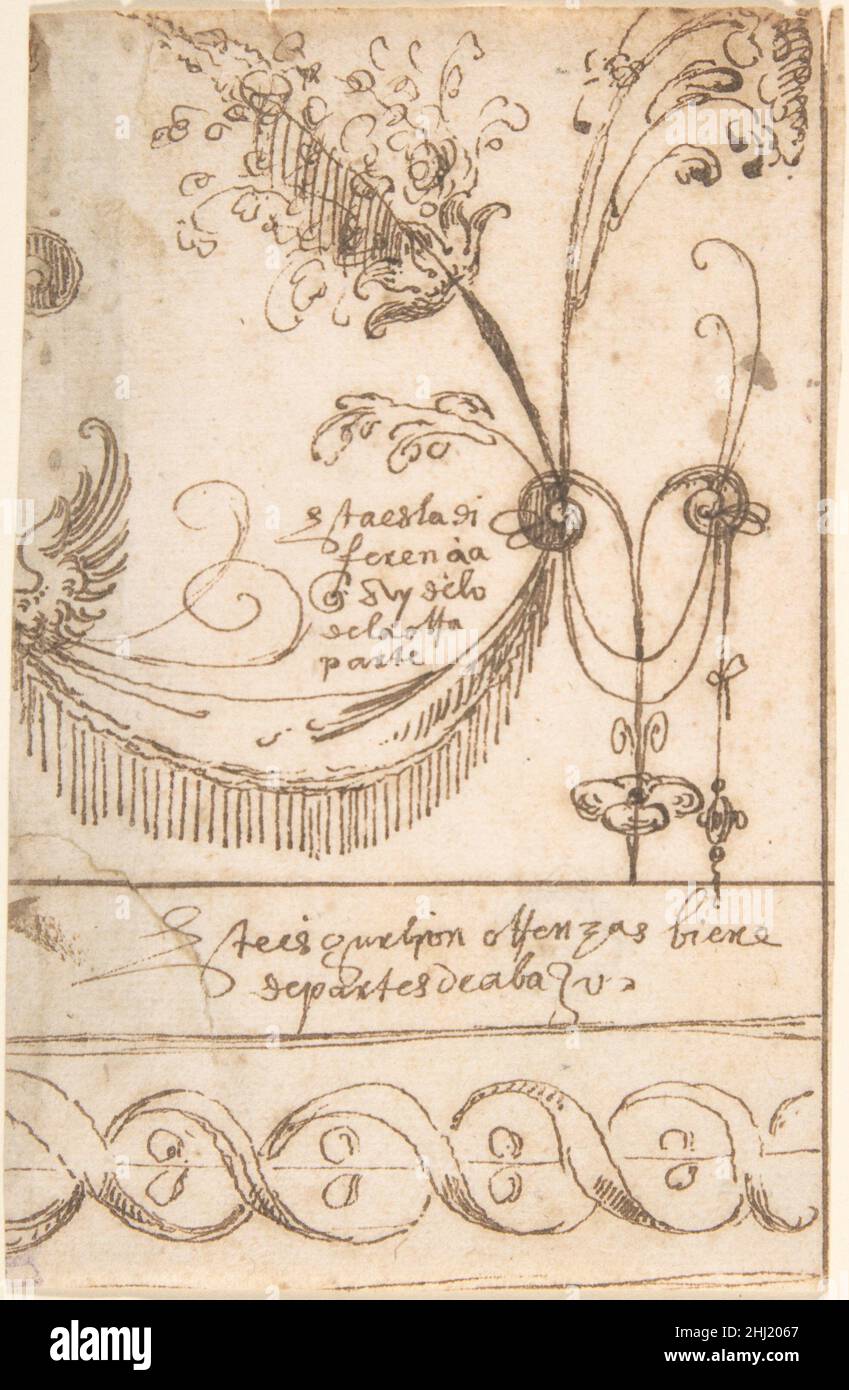 Estaesladi
ferençia
q̃ Ay delo
dela otra
parte
Este isgurbion ottenzas biene
departes de aba xo
alamy
Image ID: 2HJ2067
www.alamy.com